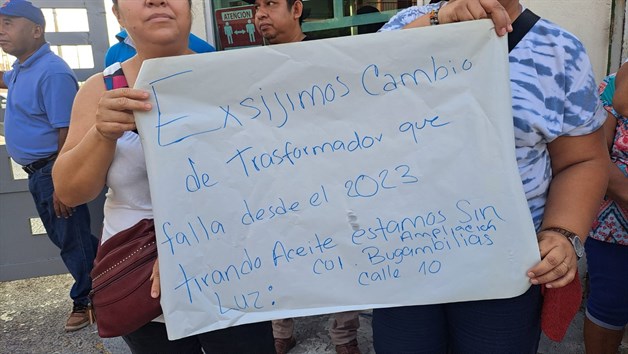 ATENCIÓN
Exsijimos Cambio
de trasformador que
falla desde el 2023
tirando Aceite estamos Sin
Luz: Col. Ampliación
Bugambilias
Calle 10